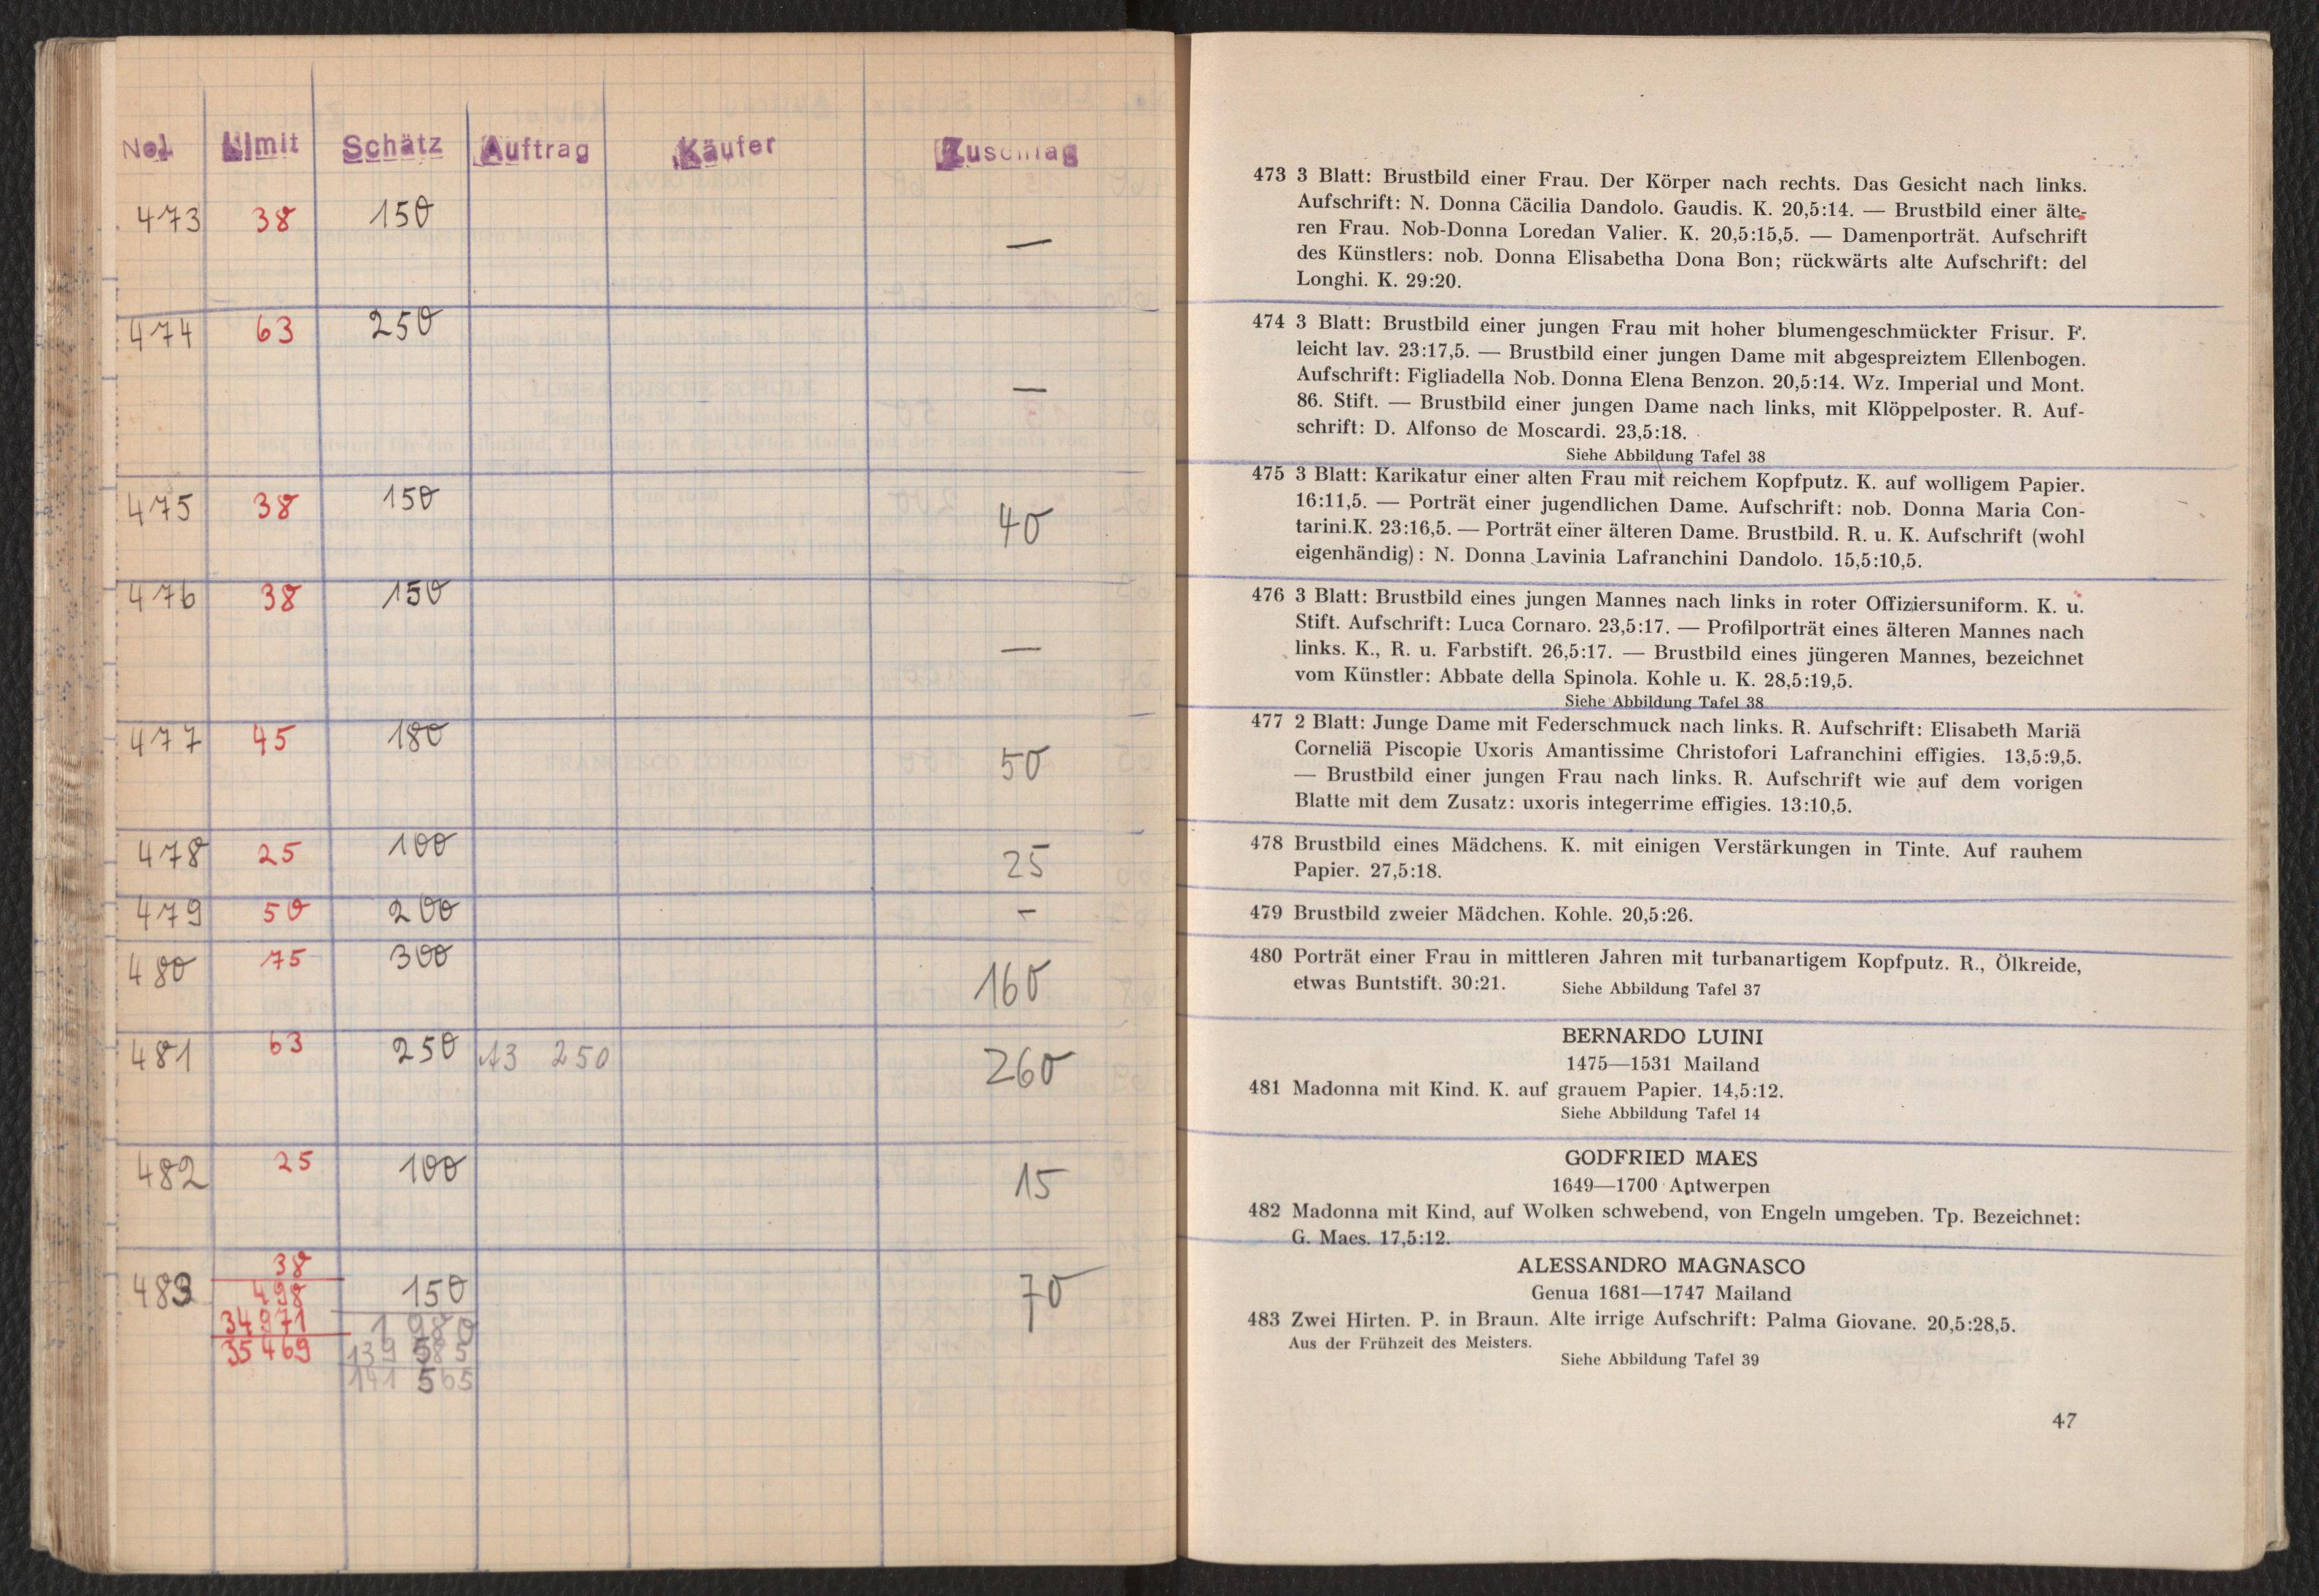 No. Limit Schätz Auftrag Käufer Zuschlag
473 38 150 —
474 63 250 —
475 38 150 40
476 38 150 —
477 45 180 50
478 25 100 25
479 50 200 –
480 75 300 160
481 63 250 A3 250 260
482 25 100 15
483 38 150 70
498 1 980
34 971 139 585
35 469 141 565
473 3 Blatt: Brustbild einer Frau. Der Körper nach rechts. Das Gesicht nach links.
Aufschrift: N. Donna Cäcilia Dandolo. Gaudis. K. 20,5:14. — Brustbild einer älte-
ren Frau. Nob-Donna Loredan Valier. K. 20,5:15,5. — Damenporträt. Aufschrift
des Künstlers: nob. Donna Elisabetha Dona Bon; rückwärts alte Aufschrift: del
Longhi. K. 29:20.
474 3 Blatt: Brustbild einer jungen Frau mit hoher blumengeschmückter Frisur. F.
leicht lav. 23:17,5. — Brustbild einer jungen Dame mit abgespreiztem Ellenbogen.
Aufschrift: Figliadella Nob. Donna Elena Benzon. 20,5:14. Wz. Imperial und Mont.
86. Stift. — Brustbild einer jungen Dame nach links, mit Klöppelposter. R. Auf-
schrift: D. Alfonso de Moscardi. 23,5:18.
Siehe Abbildung Tafel 38
475 3 Blatt: Karikatur einer alten Frau mit reichem Kopfputz. K. auf wolligem Papier.
16:11,5. — Porträt einer jugendlichen Dame. Aufschrift: nob. Donna Maria Con-
tarini.K. 23:16,5. — Porträt einer älteren Dame. Brustbild. R. u. K. Aufschrift (wohl
eigenhändig): N. Donna Lavinia Lafranchini Dandolo. 15,5:10,5.
476 3 Blatt: Brustbild eines jungen Mannes nach links in roter Offiziersuniform. K. u.
Stift. Aufschrift: Luca Cornaro. 23,5:17. — Profilporträt eines älteren Mannes nach
links. K., R. u. Farbstift. 26,5:17. — Brustbild eines jüngeren Mannes, bezeichnet
vom Künstler: Abbate della Spinola. Kohle u. K. 28,5:19,5.
Siehe Abbildung Tafel 38
477 2 Blatt: Junge Dame mit Federschmuck nach links. R. Aufschrift: Elisabeth Mariä
Corneliä Piscopie Uxoris Amantissime Christofori Lafranchini effigies. 13,5:9,5.
— Brustbild einer jungen Frau nach links. R. Aufschrift wie auf dem vorigen
Blatte mit dem Zusatz: uxoris integerrime effigies. 13:10,5.
478 Brustbild eines Mädchens. K. mit einigen Verstärkungen in Tinte. Auf rauhem
Papier. 27,5:18.
479 Brustbild zweier Mädchen. Kohle. 20,5:26.
480 Porträt einer Frau in mittleren Jahren mit turbanartigem Kopfputz. R., Ölkreide,
etwas Buntstift. 30:21. Siehe Abbildung Tafel 37
BERNARDO LUINI
1475—1531 Mailand
481 Madonna mit Kind. K. auf grauem Papier. 14,5:12.
Siehe Abbildung Tafel 14
GODFRIED MAES
1649—1700 Antwerpen
482 Madonna mit Kind, auf Wolken schwebend, von Engeln umgeben. Tp. Bezeichnet:
G. Maes. 17,5:12.
ALESSANDRO MAGNASCO
Genua 1681—1747 Mailand
483 Zwei Hirten. P. in Braun. Alte irrige Aufschrift: Palma Giovane. 20,5:28,5.
Aus der Frühzeit des Meisters.
Siehe Abbildung Tafel 39
47